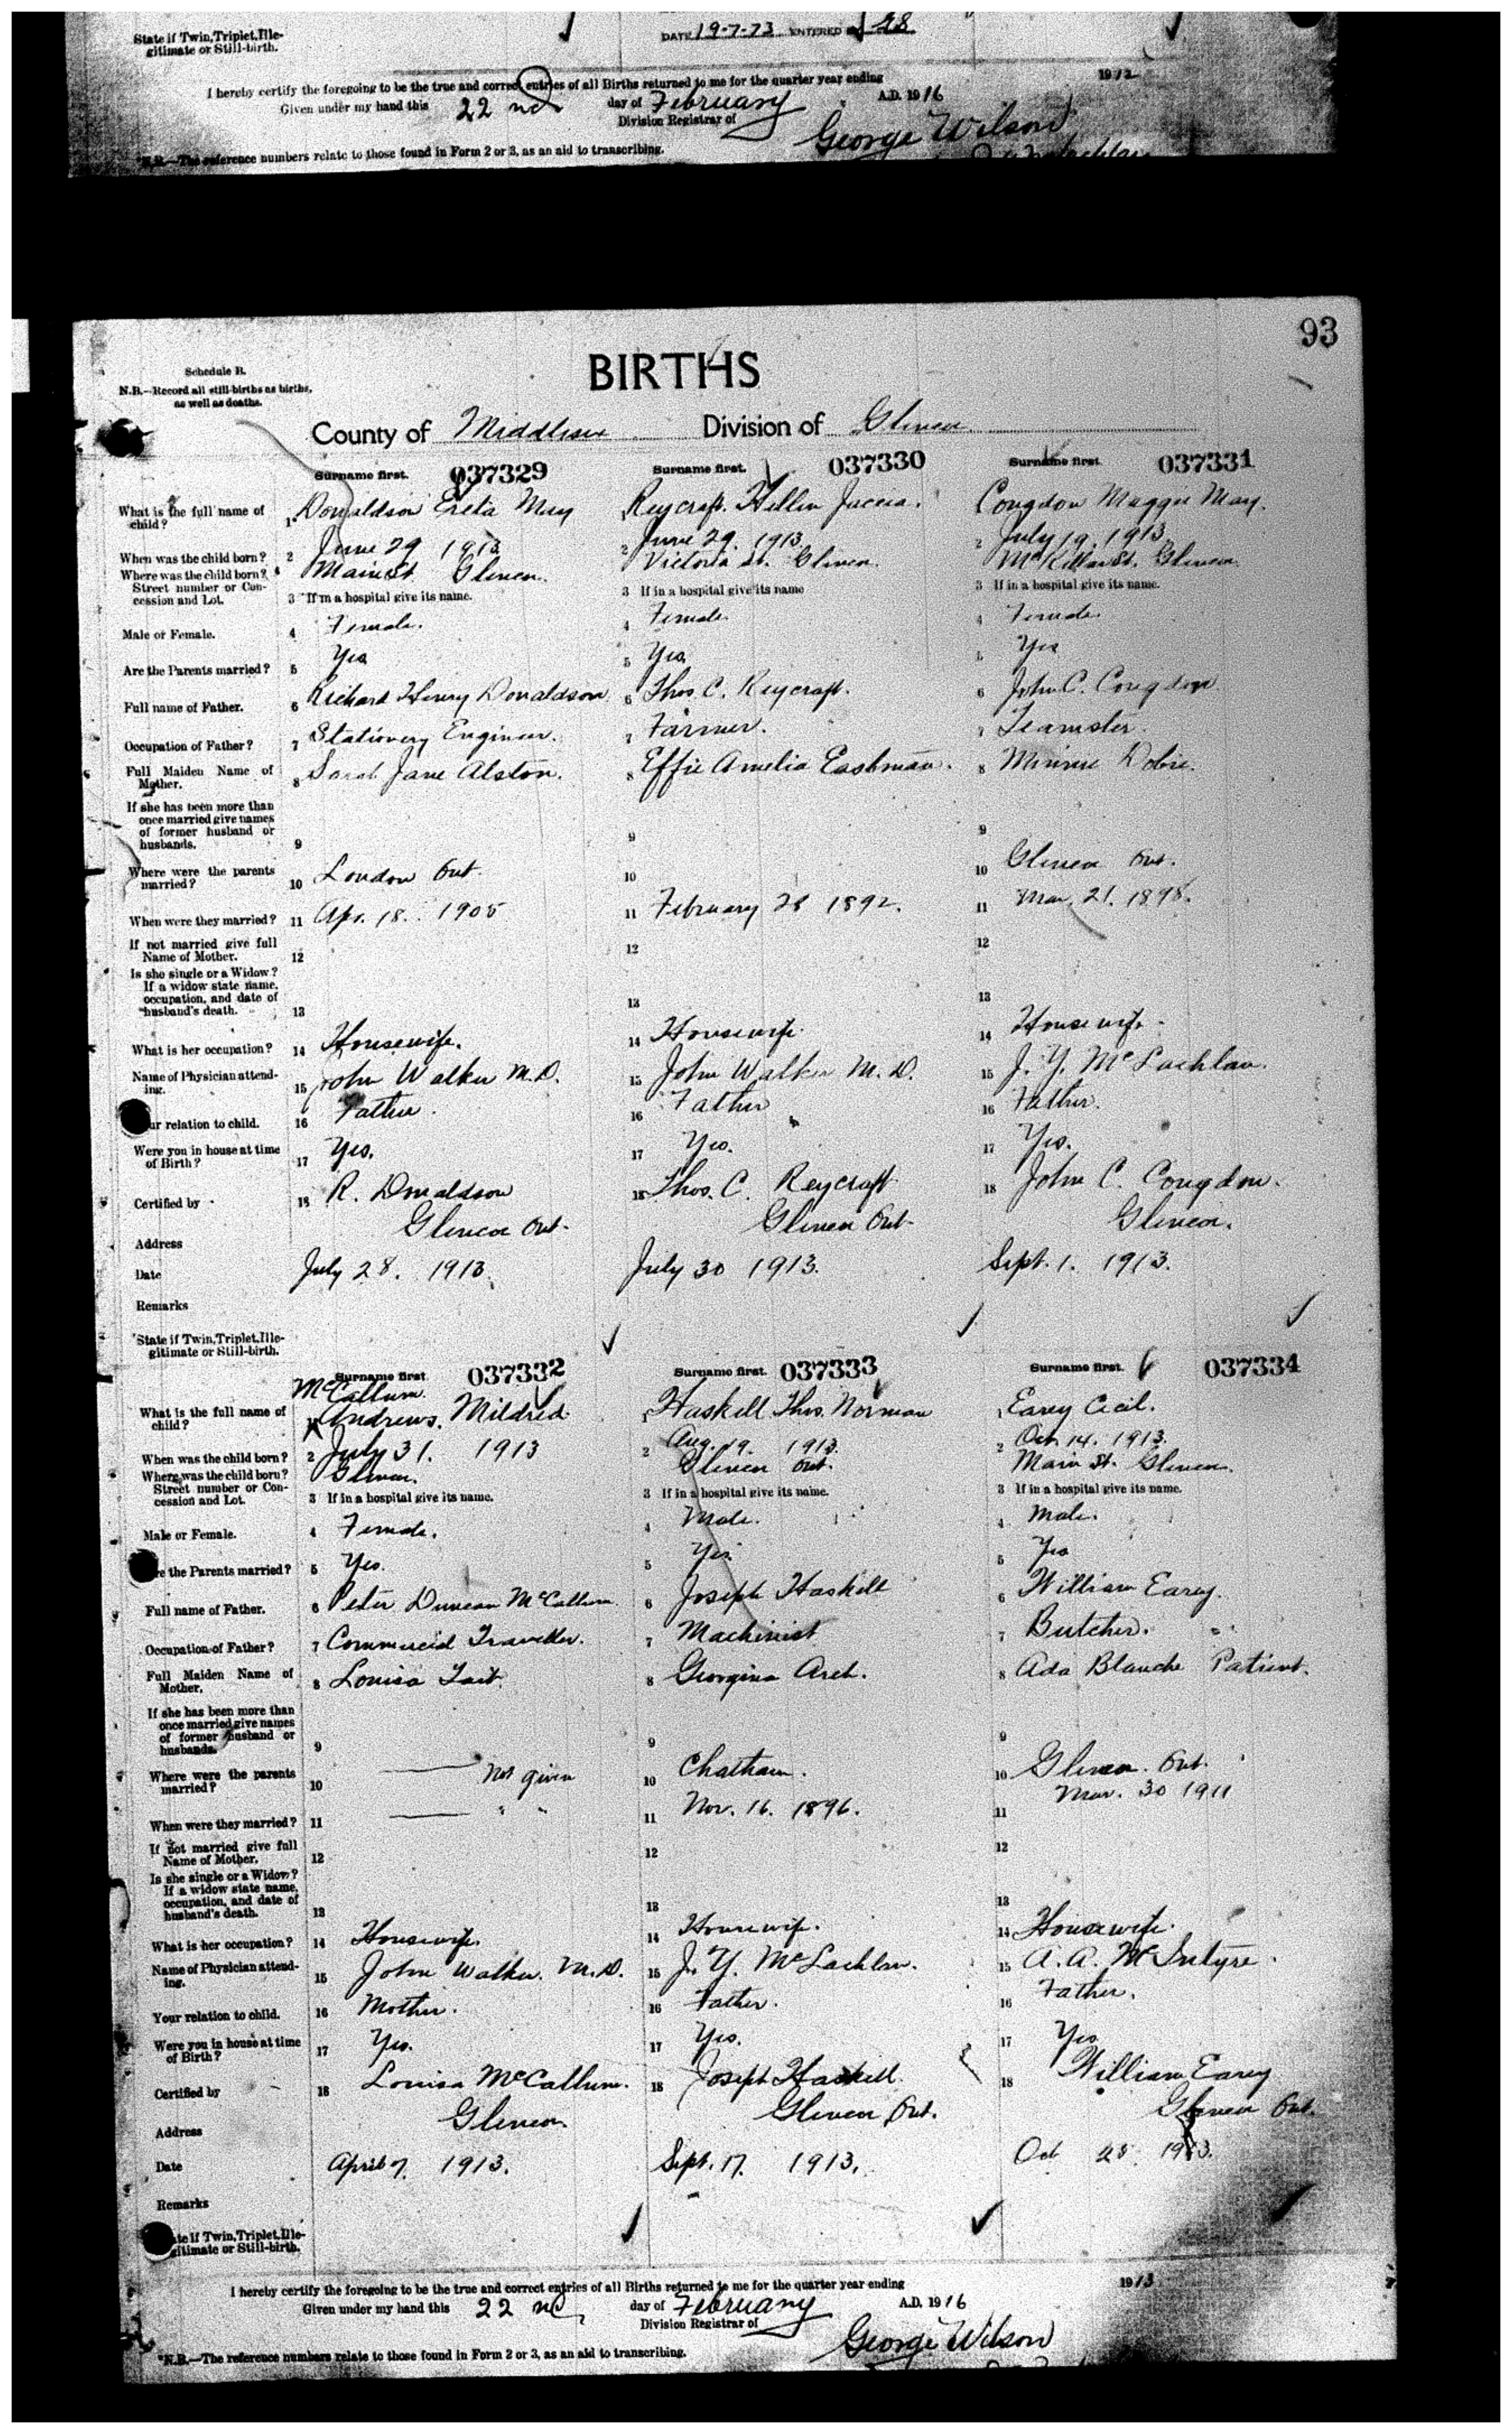 State if Twin, Triplet, Ille-
gitimate or Still-birth.
DATE 19-7-73 ENTERED
I hereby certify the foregoing to be the true and correct entries of all Births returned to me for the quarter year ending 1912
Given under my hand this 22 nd day of February A.D. 1916
Division Registrar of George Wilson
N.B.—The reference numbers relate to those found in Form 2 or 3, as an aid to transcribing.
93
Schedule B.
BIRTHS
N.B.—Record all still-births as births,
as well as deaths.
County of Middlesex Division of Glencoe
Surname first. 037329 Surname first. 037330 Surname first. 037331
What is the full name of
child? 1 Donaldson Ereta May 1 Reycraft. Hellen 1 Congdon Maggie May.
When was the child born? 2 June 29 1913 2 June 29. 1913. 2 July 19. 1913.
Where was the child born? Main St Glencoe. Victoria St. Glencoe. McKellar St. Glencoe.
Street number or Con-
cession and Lot. 3 If in a hospital give its name. 3 If in a hospital give its name 3 If in a hospital give its name.
Male or Female. 4 Female. 4 Female. 4 Female.
Are the Parents married? 5 Yes 5 Yes 5 Yes
Full name of Father. 6 Richard Henry Donaldson 6 Thos. C. Reycraft. 6 John C. Congdon
Occupation of Father? 7 Stationery Engineer. 7 Farmer. 7 Teamster.
Full Maiden Name of
Mother. 8 Sarah Jane Alston. 8 Effie Amelia Eastman. 8 Minnie Dobie.
If she has been more than
once married give names
of former husband or
husbands. 9 9 9
Where were the parents
married? 10 London Ont. 10 10 Glencoe Ont.
When were they married? 11 Apr. 18. 1905 11 February 28 1892. 11 Mar. 21. 1898.
If not married give full
Name of Mother. 12 12 12
Is she single or a Widow?
If a widow state name,
occupation, and date of
husband's death. 13 13 13
What is her occupation? 14 Housewife. 14 Housewife. 14 Housewife.
Name of Physician attend-
ing. 15 John Walker M.D. 15 John Walker M.D. 15 J. Y. McLachlan.
ur relation to child. 16 Father. 16 Father 16 Father.
Were you in house at time
of Birth? 17 Yes. 17 Yes. 17 Yes.
Certified by 18 R. Donaldson 18 Thos. C. Reycraft 18 John C. Congdon.
Address Glencoe Ont. Glencoe Ont. Glencoe.
Date July 28. 1913. July 30 1913. Sept. 1. 1913.
Remarks
State if Twin, Triplet, Ille-
gitimate or Still-birth.
Surname first 037332 Surname first. 037333 Surname first. 037334
McCallum.
What is the full name of
child? 1 Andrews. Mildred 1 Haskell Thos. Norman 1 Earey Cecil.
When was the child born? 2 July 31. 1913 2 Aug. 19. 1913. 2 Oct. 14. 1913.
Where was the child born? Glencoe. Glencoe Ont. Main St. Glencoe.
Street number or Con-
cession and Lot. 3 If in a hospital give its name. 3 If in a hospital give its name. 3 If in a hospital give its name.
Male or Female. 4 Female. 4 Male. 4 Male.
re the Parents married? 5 Yes. 5 Yes. 5 Yes
Full name of Father. 6 Peter Duncan McCallum. 6 Joseph Haskell 6 William Earey.
Occupation of Father? 7 Commercial Traveller. 7 Machinist 7 Butcher.
Full Maiden Name of
Mother. 8 Louisa Tait. 8 Georgina Arch. 8 Ada Blanche Patient.
If she has been more than
once married give names
of former husband or
husbands. 9 9 9
Where were the parents
married? 10 Not given 10 Chatham. 10 Glencoe. Ont.
When were they married? 11 " " 11 Nov. 16. 1896. 11 Mar. 30 1911
If not married give full
Name of Mother. 12 12 12
Is she single or a Widow?
If a widow state name,
occupation, and date of
husband's death. 13 13 13
What is her occupation? 14 Housewife. 14 Housewife. 14 Housewife.
Name of Physician attend-
ing. 15 John Walker. M.D. 15 J. Y. McLachlan. 15 A. A. McIntyre.
Your relation to child. 16 Mother. 16 Father. 16 Father.
Were you in house at time
of Birth? 17 Yes. 17 Yes. 17 Yes
Certified by 18 Louisa McCallum. 18 Joseph Haskell. 18 William Earey
Address Glencoe. Glencoe Ont. Glencoe Ont.
Date April 7. 1913. Sept. 17. 1913. Oct 25. 1913.
Remarks
te if Twin, Triplet, Ille-
gitimate or Still-birth.
I hereby certify the foregoing to be the true and correct entries of all Births returned to me for the quarter year ending 1913
Given under my hand this 22 nd day of February A.D. 1916
Division Registrar of George Wilson
N.B.—The reference numbers relate to those found in Form 2 or 3, as an aid to transcribing.